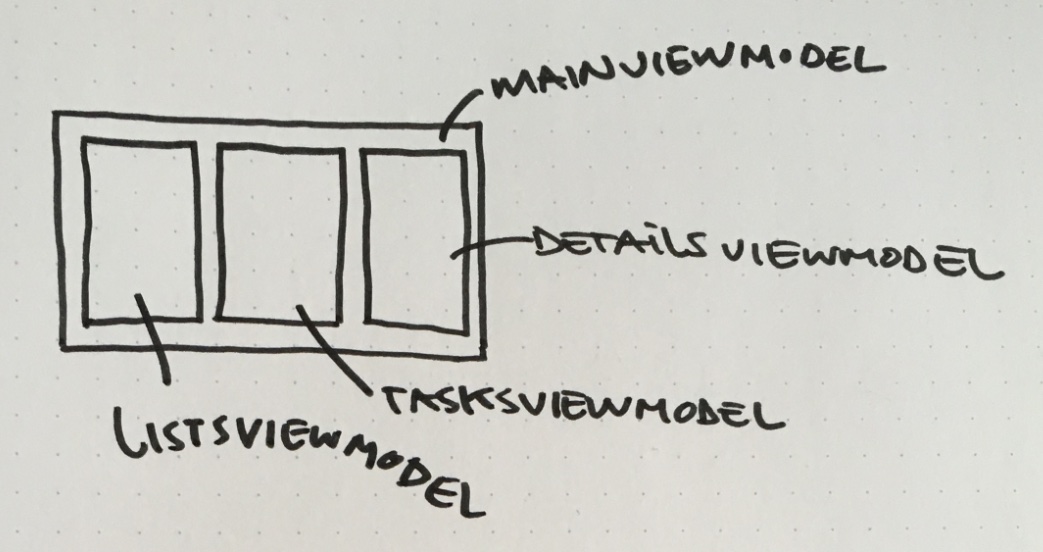 MAINVIEWMODEL
DETAILSVIEWMODEL
TASKSVIEWMODEL
LISTSVIEWMODEL